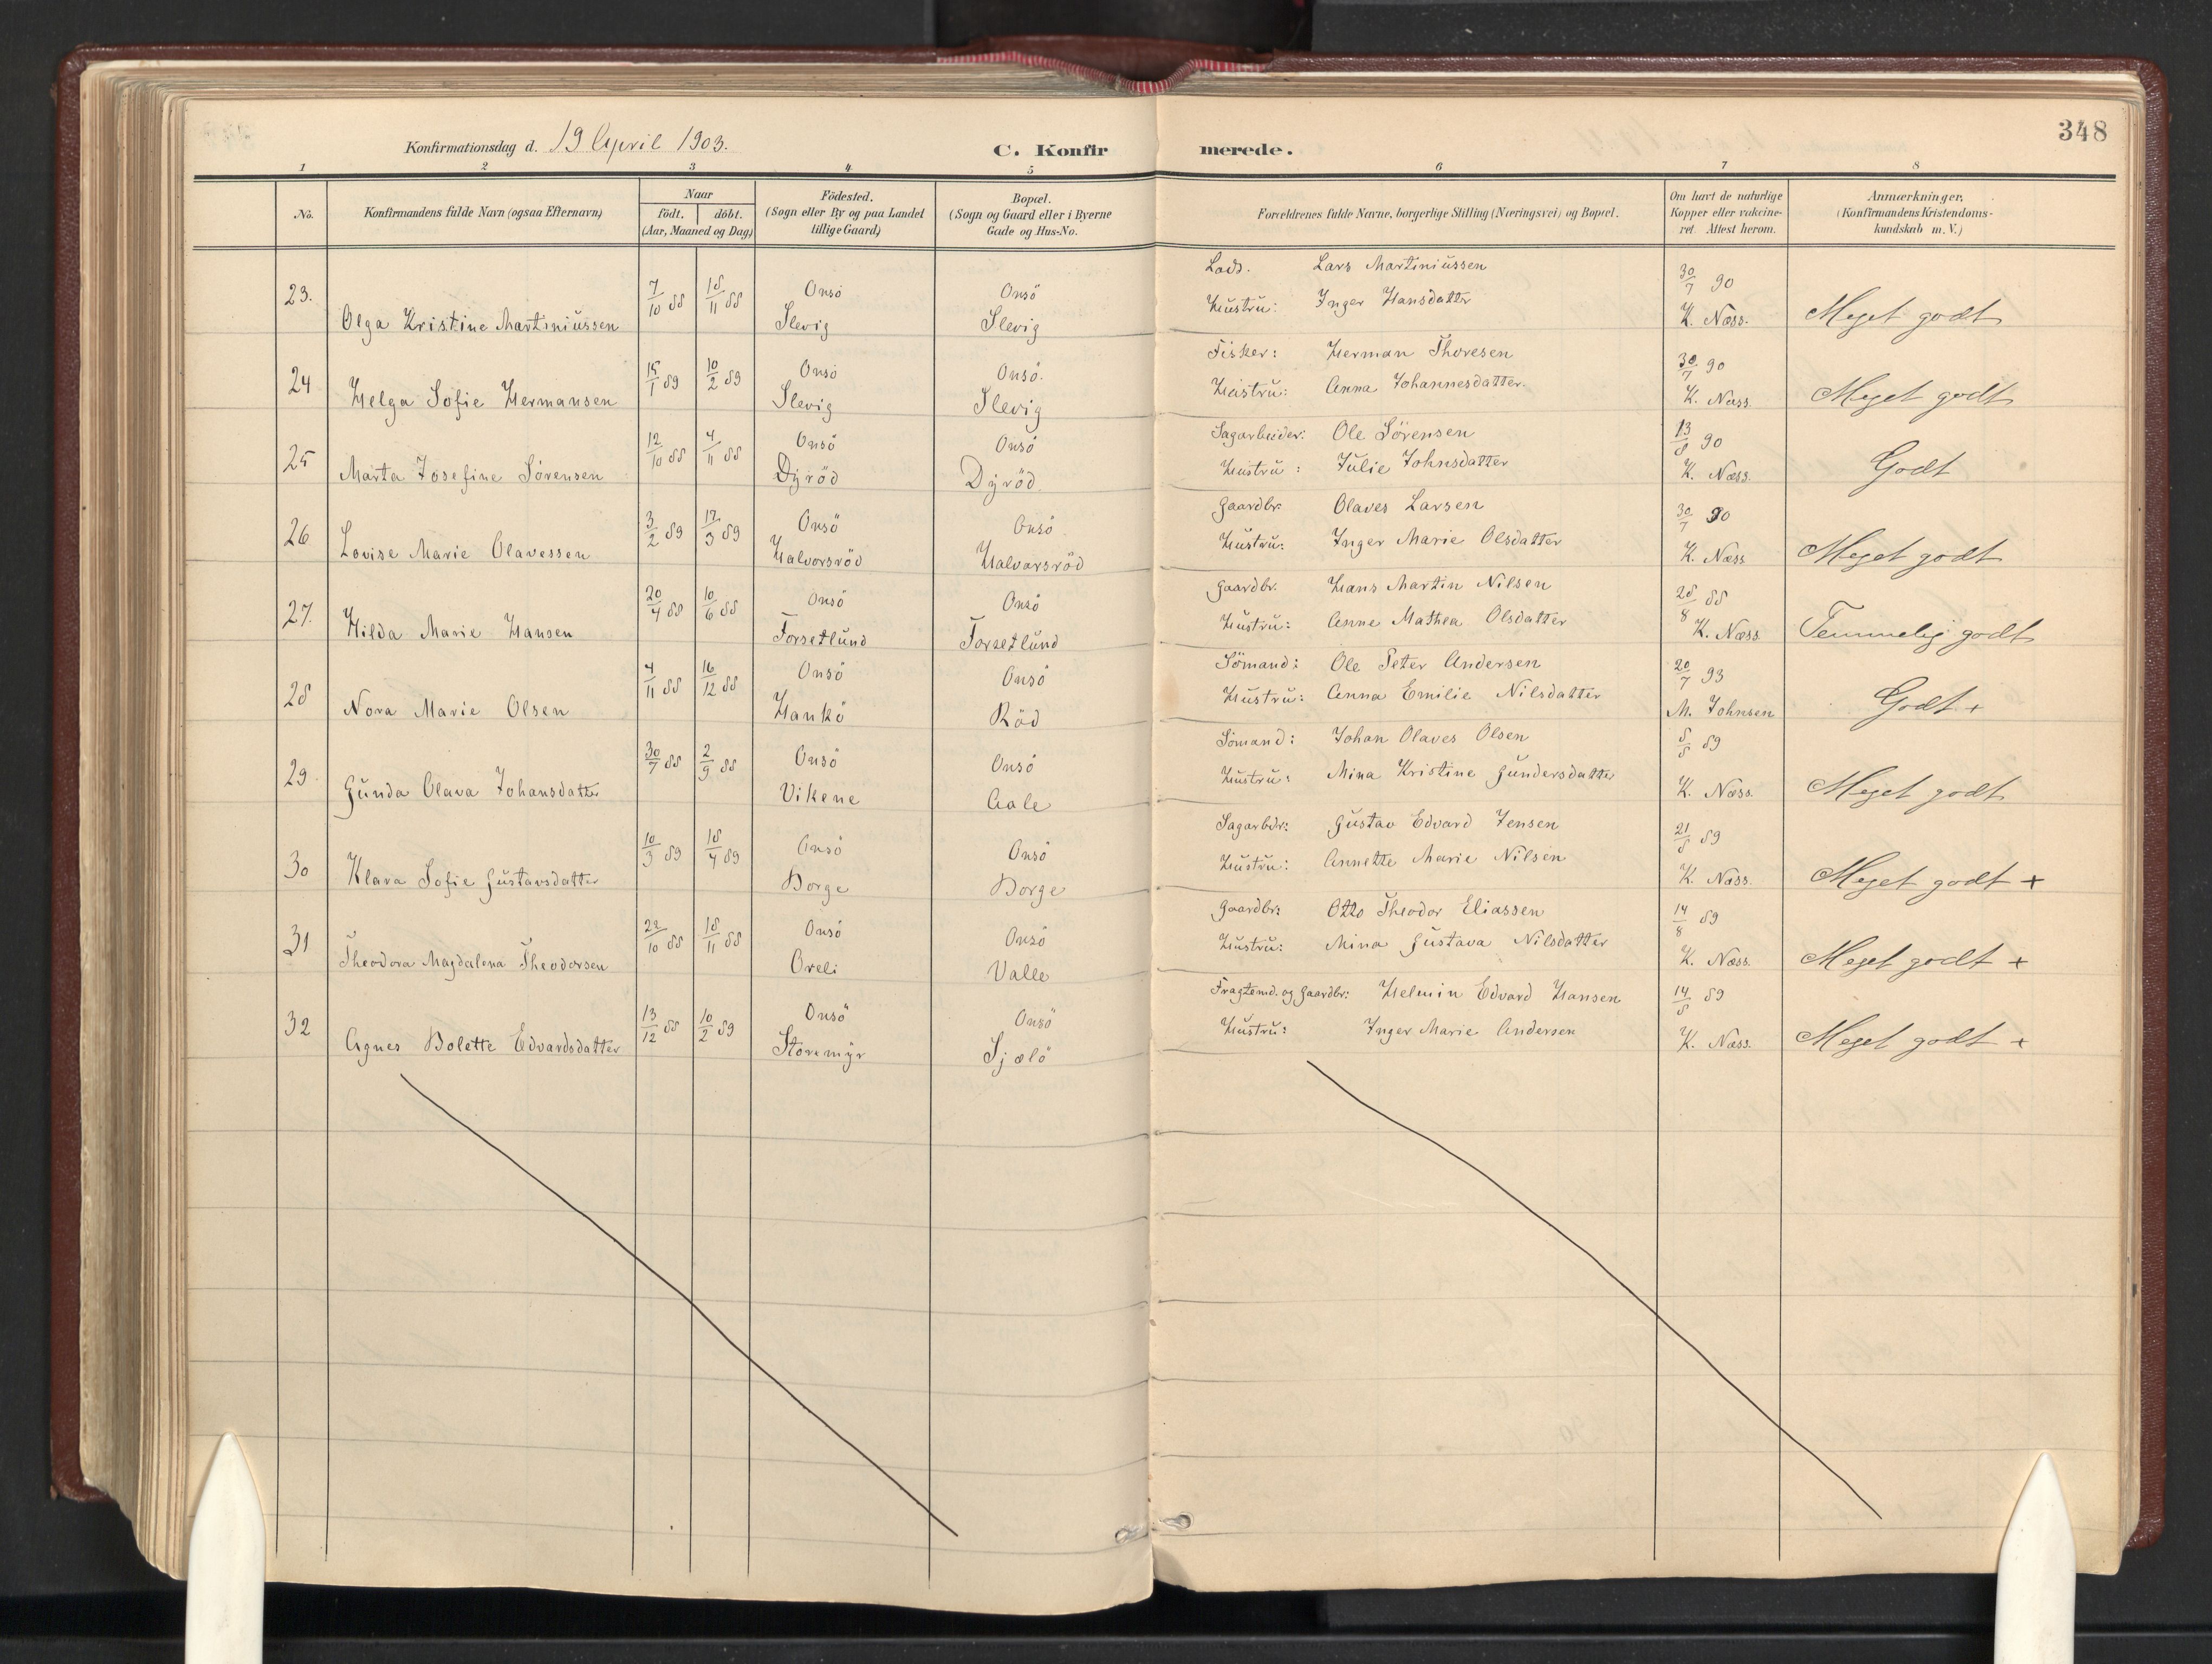 348
Konfirmationsdag d. 19 April 1903.
C. Konfirmerede.
1 2 3 4 5 6 7 8
No. | Konfirmandens fulde Navn (ogsaa Efternavn) | Naar født. | døbt. (Aar, Maaned og Dag) | Fødested. (Sogn eller By og paa Landet tillige Gaard) | Bopæl. (Sogn og Gaard eller i Byerne Gade og Hus-No. | Forældrenes fulde Navne, borgerlige Stilling (Næringsvei) og Bopæl. | Om havt de naturlige Kopper eller vakcineret. Attest herom. | Anmærkninger, (Konfirmandens Kristendomskundskab m. V.)
23. Olga Kristine Martiniussen | 7/10 88 | 18/11 88 | Onsö Slevig | Onsö Slevig | Lods. Lars Martiniussen | 30/7 90
Hustru: Inger Hansdatter | K. Næss. | Meget godt
24 Helga Sofie Hermansen | 15/1 89 | 10/2 89 | Onsö Slevig | Onsö. Slevig | Fisker: Herman Thoresen | 30/7 90
Hustru: Anna Johannesdatter. | K. Næss. | Meget godt
25 Marta Josefine Sørensen | 12/10 88 | 4/11 88 | Onsö Dyröd | Onsö Dyröd. | Sagarbeider: Ole Sörensen | 13/8 90
Hustru: Julie Johnsdatter | K. Næss. | Godt
26 Lovise Marie Olavessen | 3/2 89 | 17/3 89 | Onsö Halvorsröd | Onsö. Halvorsröd | Gaardbr. Olaves Larsen | 30/7 90
Hustru: Inger Marie Olsdatter | K. Næss | Meget godt
27. Hilda Marie Hansen | 20/4 88 | 10/6 88 | Onsö Forsetlund | Onsö Forsetlund | Gaardbr. Hans Martin Nilsen | 28/8 88
Hustru: Anne Mathea Olsdatter | K. Næss | Temmelig godt
28 Nora Marie Olsen | 4/11 88 | 16/12 88 | Onsö Hankö | Onsö Röd | Sömand: Ole Peter Andersen | 20/7 93
Hustru: Anna Emilie Nilsdatter | M. Johnsen | Godt +
29 Gunda Olava Johansdatter | 30/7 88 | 2/9 88 | Onsö Vikene | Onsö Aale | Sömand: Johan Olaves Olsen | 8/8 89
Hustru: Mina Kristine Gundersdatter | K. Næss. | Meget godt
30 Klara Sofie Gustavsdatter | 10/3 89 | 18/4 89 | Onsö Borge | Onsö Borge | Sagarbdr: Gustav Edvard Jensen | 21/8 89
Hustru: Annette Marie Nilsen | K. Næss. | Meget godt +
31 Theodora Magdalena Theodorsen | 22/10 88 | 18/11 88 | Onsö Oreli | Onsö Valle | Gaardbr: Otto Theodor Eliassen | 14/8 89
Hustru: Mina Gustava Nilsdatter | K. Næss. | Meget godt +
32 Agnes Bolette Edvardsdatter | 13/12 88 | 10/2 89 | Onsö Storemyr | Onsö Sjælö | Fragtemd. og Gaardbr: Helmin Edvard Hansen | 14/8 89
Hustru: Inger Marie Andersen | K. Næss. | Meget godt +